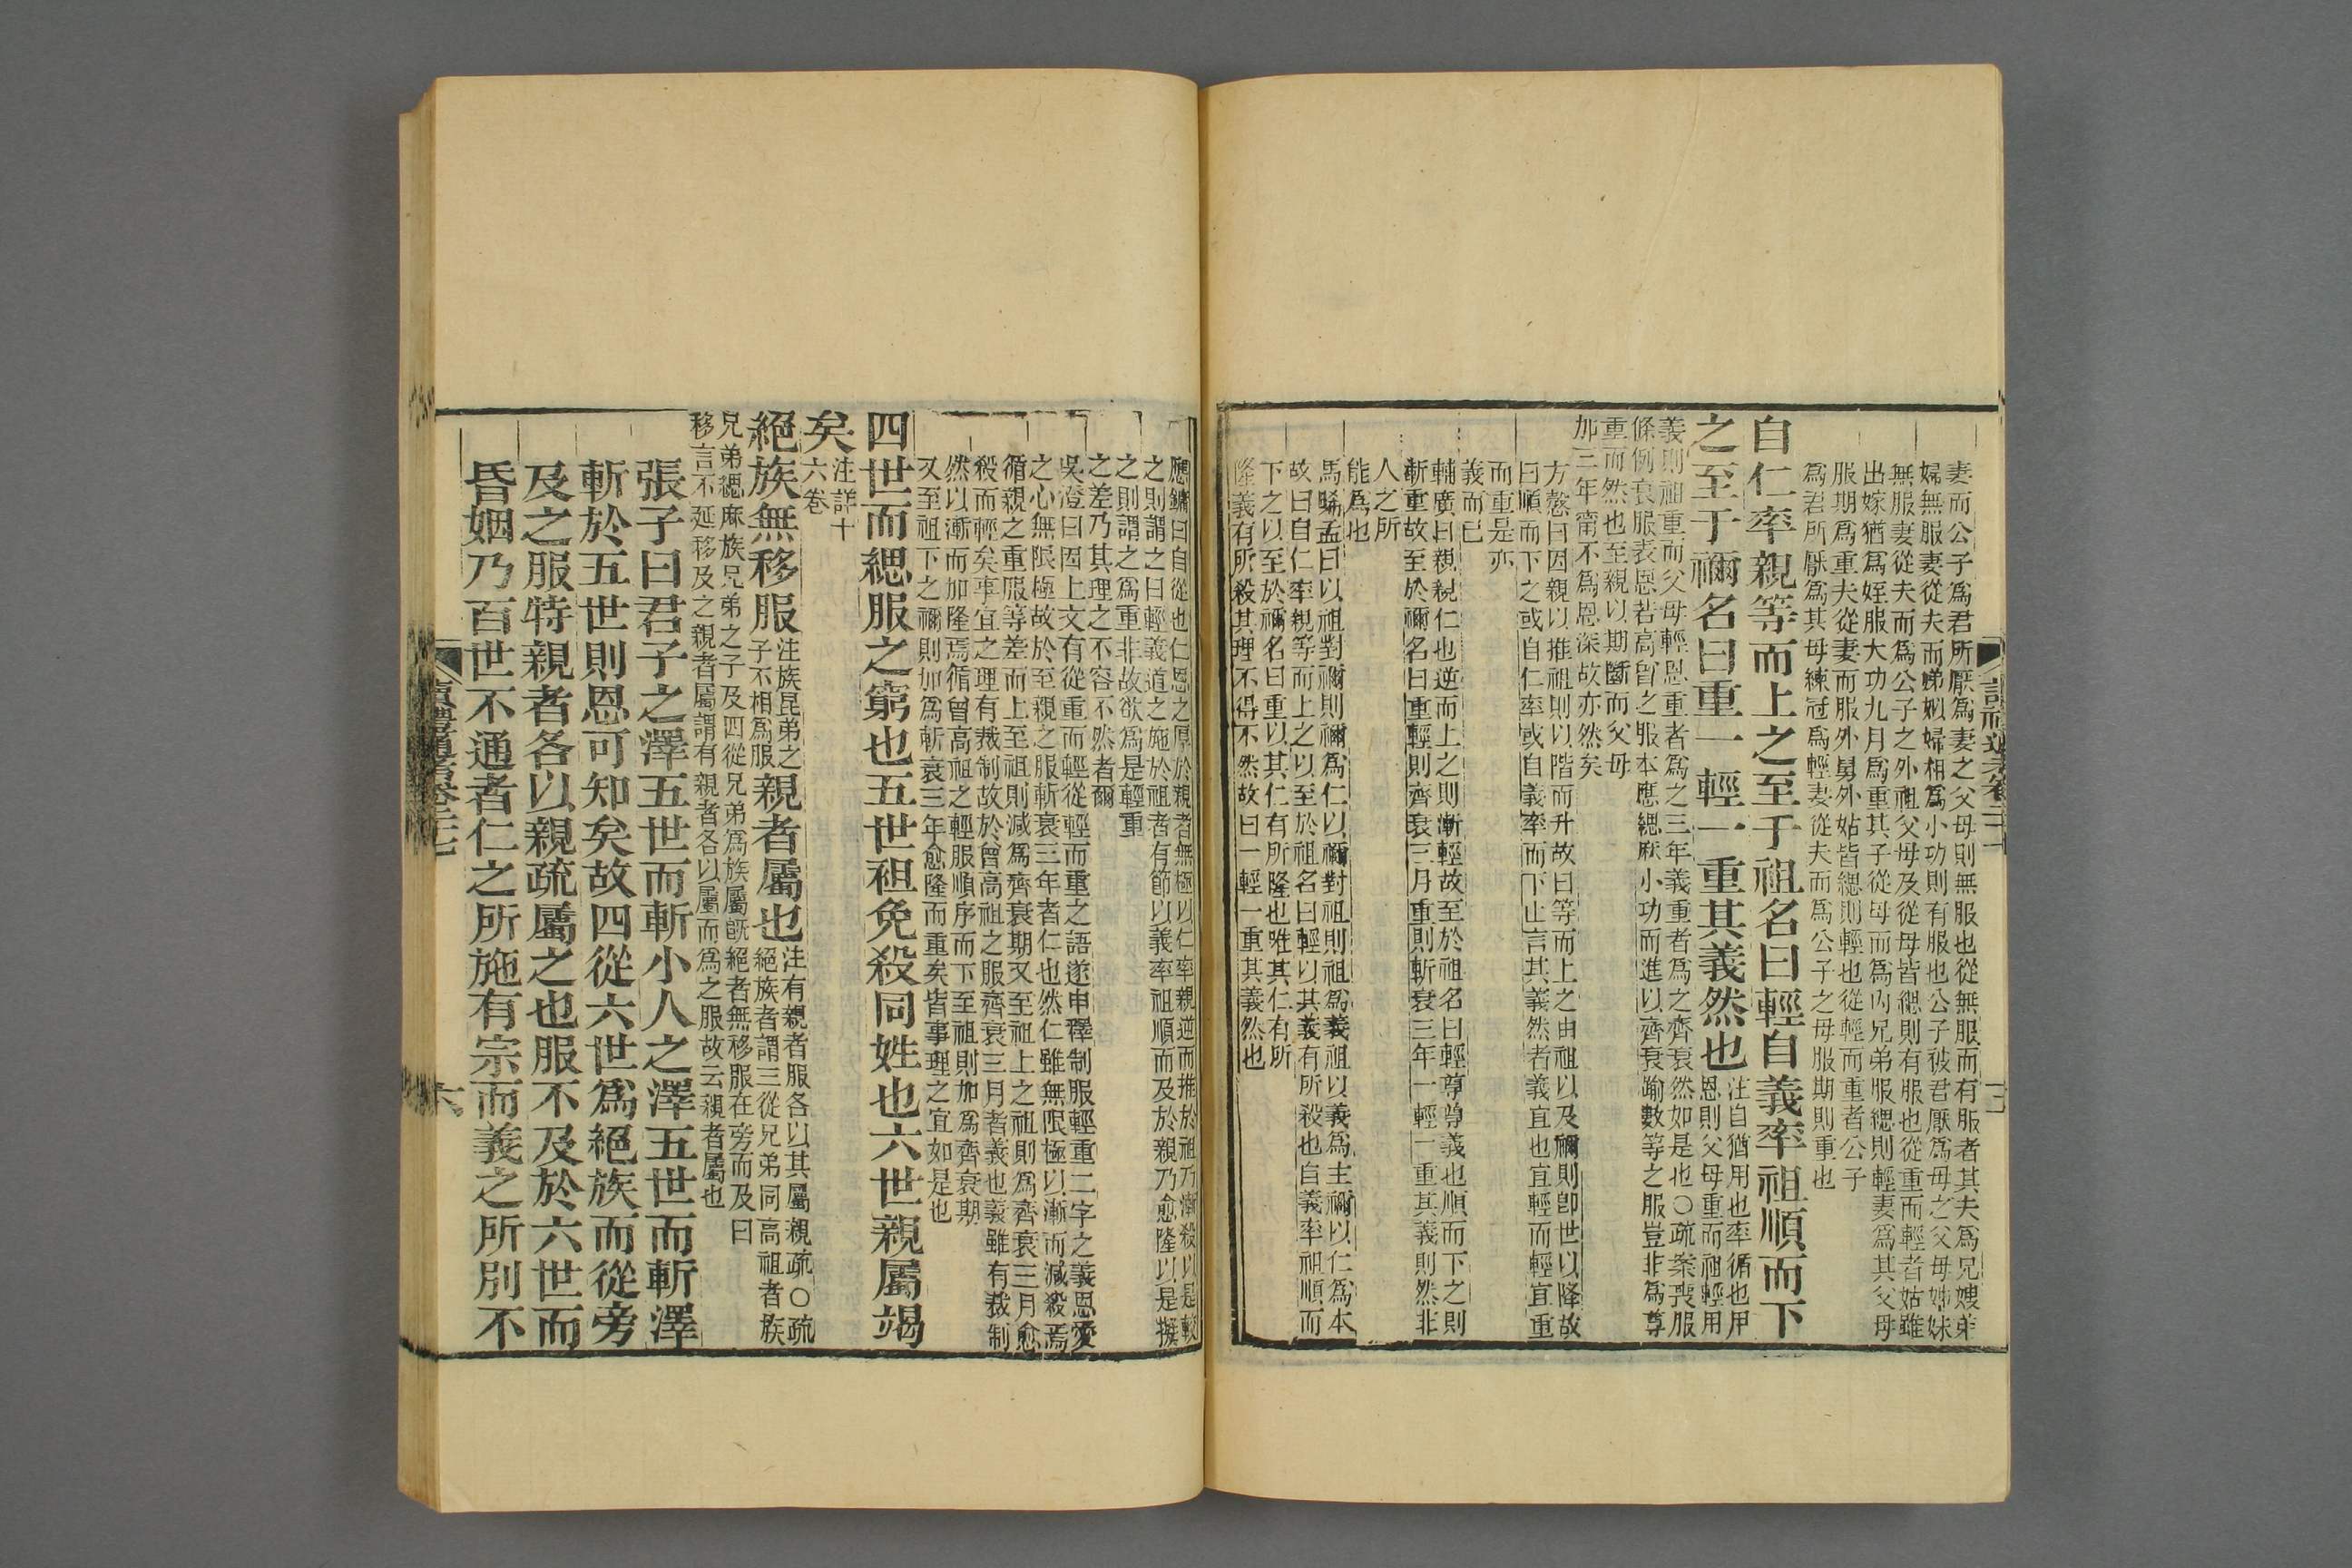 妻而公子爲君所厭爲妻之父母則無服也從無服而有服者其夫爲兄嫂弟
婦無服妻從夫而娣姒婦相爲小功則有服也公子被君厭爲母之父母姊妹
無服妻從夫而爲公子之外祖父母及從母皆緦則有服也從重而輕者姑雖
出嫁猶爲姪服大功九月爲重其子從母而爲內兄弟服緦則輕妻爲其父母
服期爲重夫從妻而服外舅外姑皆緦則輕也從輕而重者公子
爲君所厭爲其母練冠爲輕妻從夫而爲公子之母服期則重也
自仁率親等而上之至于祖名曰輕自義率祖順而下
之至于禰名曰重一輕一重其義然也
注自猶用也率循也用
恩則父母重而祖輕用
義則祖重而父母輕恩重者爲之三年義重者爲之齊衰然如是也○疏案喪服
條例衰服表恩若高曾之服本應緦麻小功而進以齊衰踰數等之服豈非爲尊
重而然也至親以期斷而父母
加三年甯不爲恩深故亦然矣
方慤曰因親以推祖則以階而升故曰等而上之由祖以及禰則卽世以降故
曰順而下之或自仁率或自義率而下止言其義然者義宜也宜輕而輕宜重
而重是亦
義而已
輔廣曰親親仁也逆而上之則漸輕故至於祖名曰輕尊尊義也順而下之則
漸重故至於禰名曰重輕則齊衰三月重則斬衰三年一輕一重其義則然非
人之所
能爲也
馬晞孟曰以祖對禰則禰爲仁以禰對祖則祖爲義祖以義爲主禰以仁爲本
故曰自仁率親等而上之以至於祖名曰輕以其義有所殺也自義率祖順而
下之以至於禰名曰重以其仁有所隆也唯其仁有所
隆義有所殺其理不得不然故曰一輕一重其義然也
應鏞曰自從也仁恩之厚於親者無極以仁率親逆而推於祖乃漸殺以是較
之則謂之曰輕義道之施於祖者有節以義率祖順而及於親乃愈隆以是擬
之則謂之爲重非故欲爲是輕重
之差乃其理之不容不然者爾
吳澄曰因上文有從重而輕從輕而重之語遂申釋制服輕重二字之義恩愛
之心無限極故於至親之服斬衰三年者仁也然仁雖無限極以漸而減殺焉
循親之重服等差而上至祖則減爲齊衰期又至祖上之祖則爲齊衰三月愈
殺而輕矣事宜之理有裁制故於曾高祖之服齊衰三月者義也義雖有裁制
然以漸而加隆焉循曾高祖之輕服順序而下至祖則加爲齊衰期
又至祖下之禰則加爲斬衰三年愈隆而重矣皆事理之宜如是也
四世而緦服之窮也五世袒免殺同姓也六世親屬竭
矣
注詳十
六卷
絕族無移服
注族昆弟之
子不相爲服
親者屬也
注有親者服各以其屬親疏○疏
絕族者謂三從兄弟同高祖者族
兄弟緦麻族兄弟之子及四從兄弟爲族屬旣絕者無移服在旁而及曰
移言不延移及之親者屬謂有親者各以屬而爲之服故云親者屬也
張子曰君子之澤五世而斬小人之澤五世而斬澤
斬於五世則恩可知矣故四從六世爲絕族而從旁
及之服特親者各以親疏屬之也服不及於六世而
昏姻乃百世不通者仁之所施有宗而義之所別不
讀禮通考卷二十七
六